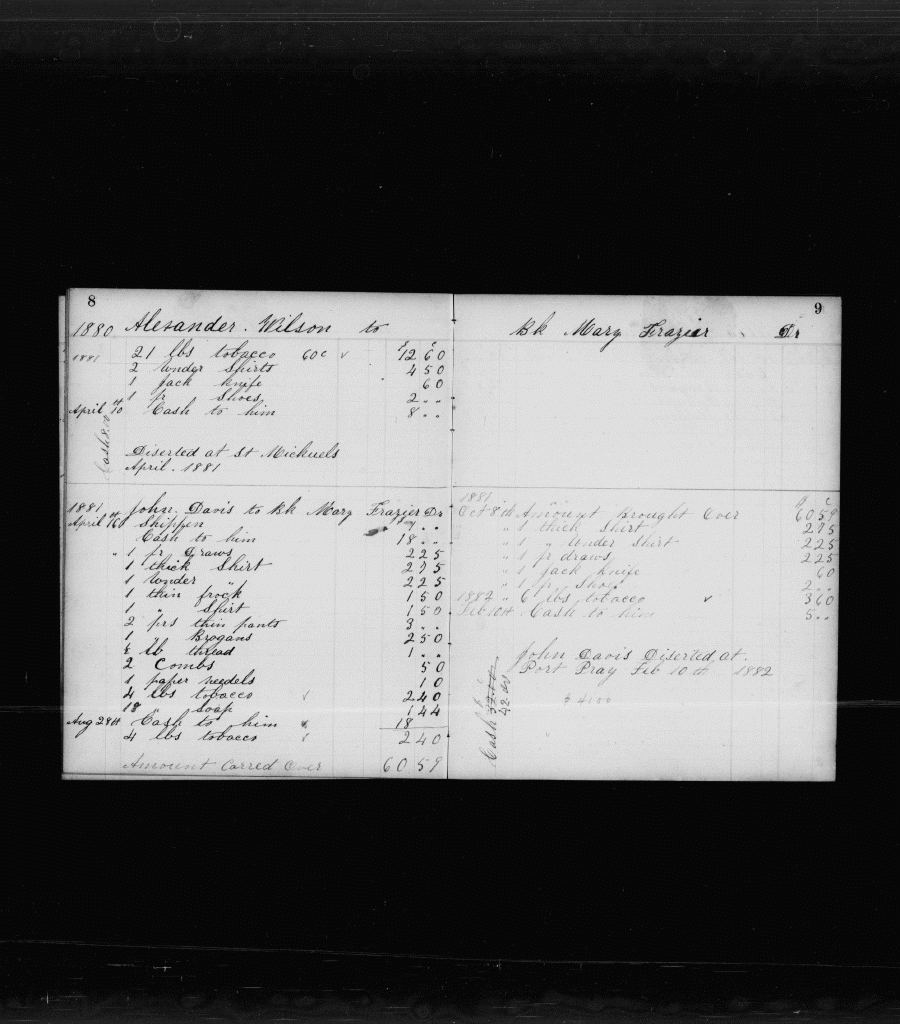 8
1880 Alexander. Wilson to
1881 21 lbs tobacco 60c ✓ $12 60
2 under Shirts 4 50
1 Jack Knife 60
1 pr Shoes 2 „ „
April 10th Cash to him 8 „ „
Cash 8.00
Diserted at St Mickuels
April. 1881
1881 John. Davis to Bk Mary Frazier Dr
April 16th Shippen
Cash to him 18 „ „
„ 1 pr Draws 2 25
1 thick Shirt 2 75
1 under „ 2 25
1 thin frock 1 50
1 „ Shirt 1 50
2 prs thin pants 3 „ „
1 „ Brogans 2 50
½ lb thread 1 „ „
2 Combs 50
1 paper needels 10
4 lbs tobacco ✓ 2 40
18 „ soap 1 44
Aug 28th Cash to him 18
4 lbs tobacco ✓ 2 40
Amount Carred Over 60 59
9
Bk Mary Frazier Dr
1881 $ c
Oct 8th Amount Brought Over 60 59
„ 1 thick Shirt 2 75
„ 1 „ under Shirt 2 25
„ 1 pr draws 2 25
„ 1 Jack Knife 60
„ 1 pr Shoes 2 „ „
1882 „ 6 lbs tobacco ✓ 3 60
Feb 10th Cash to him 5 „ „
John Davis Diserted, at.
Port Pray Feb 10th 1882
$ 41 00
Cash